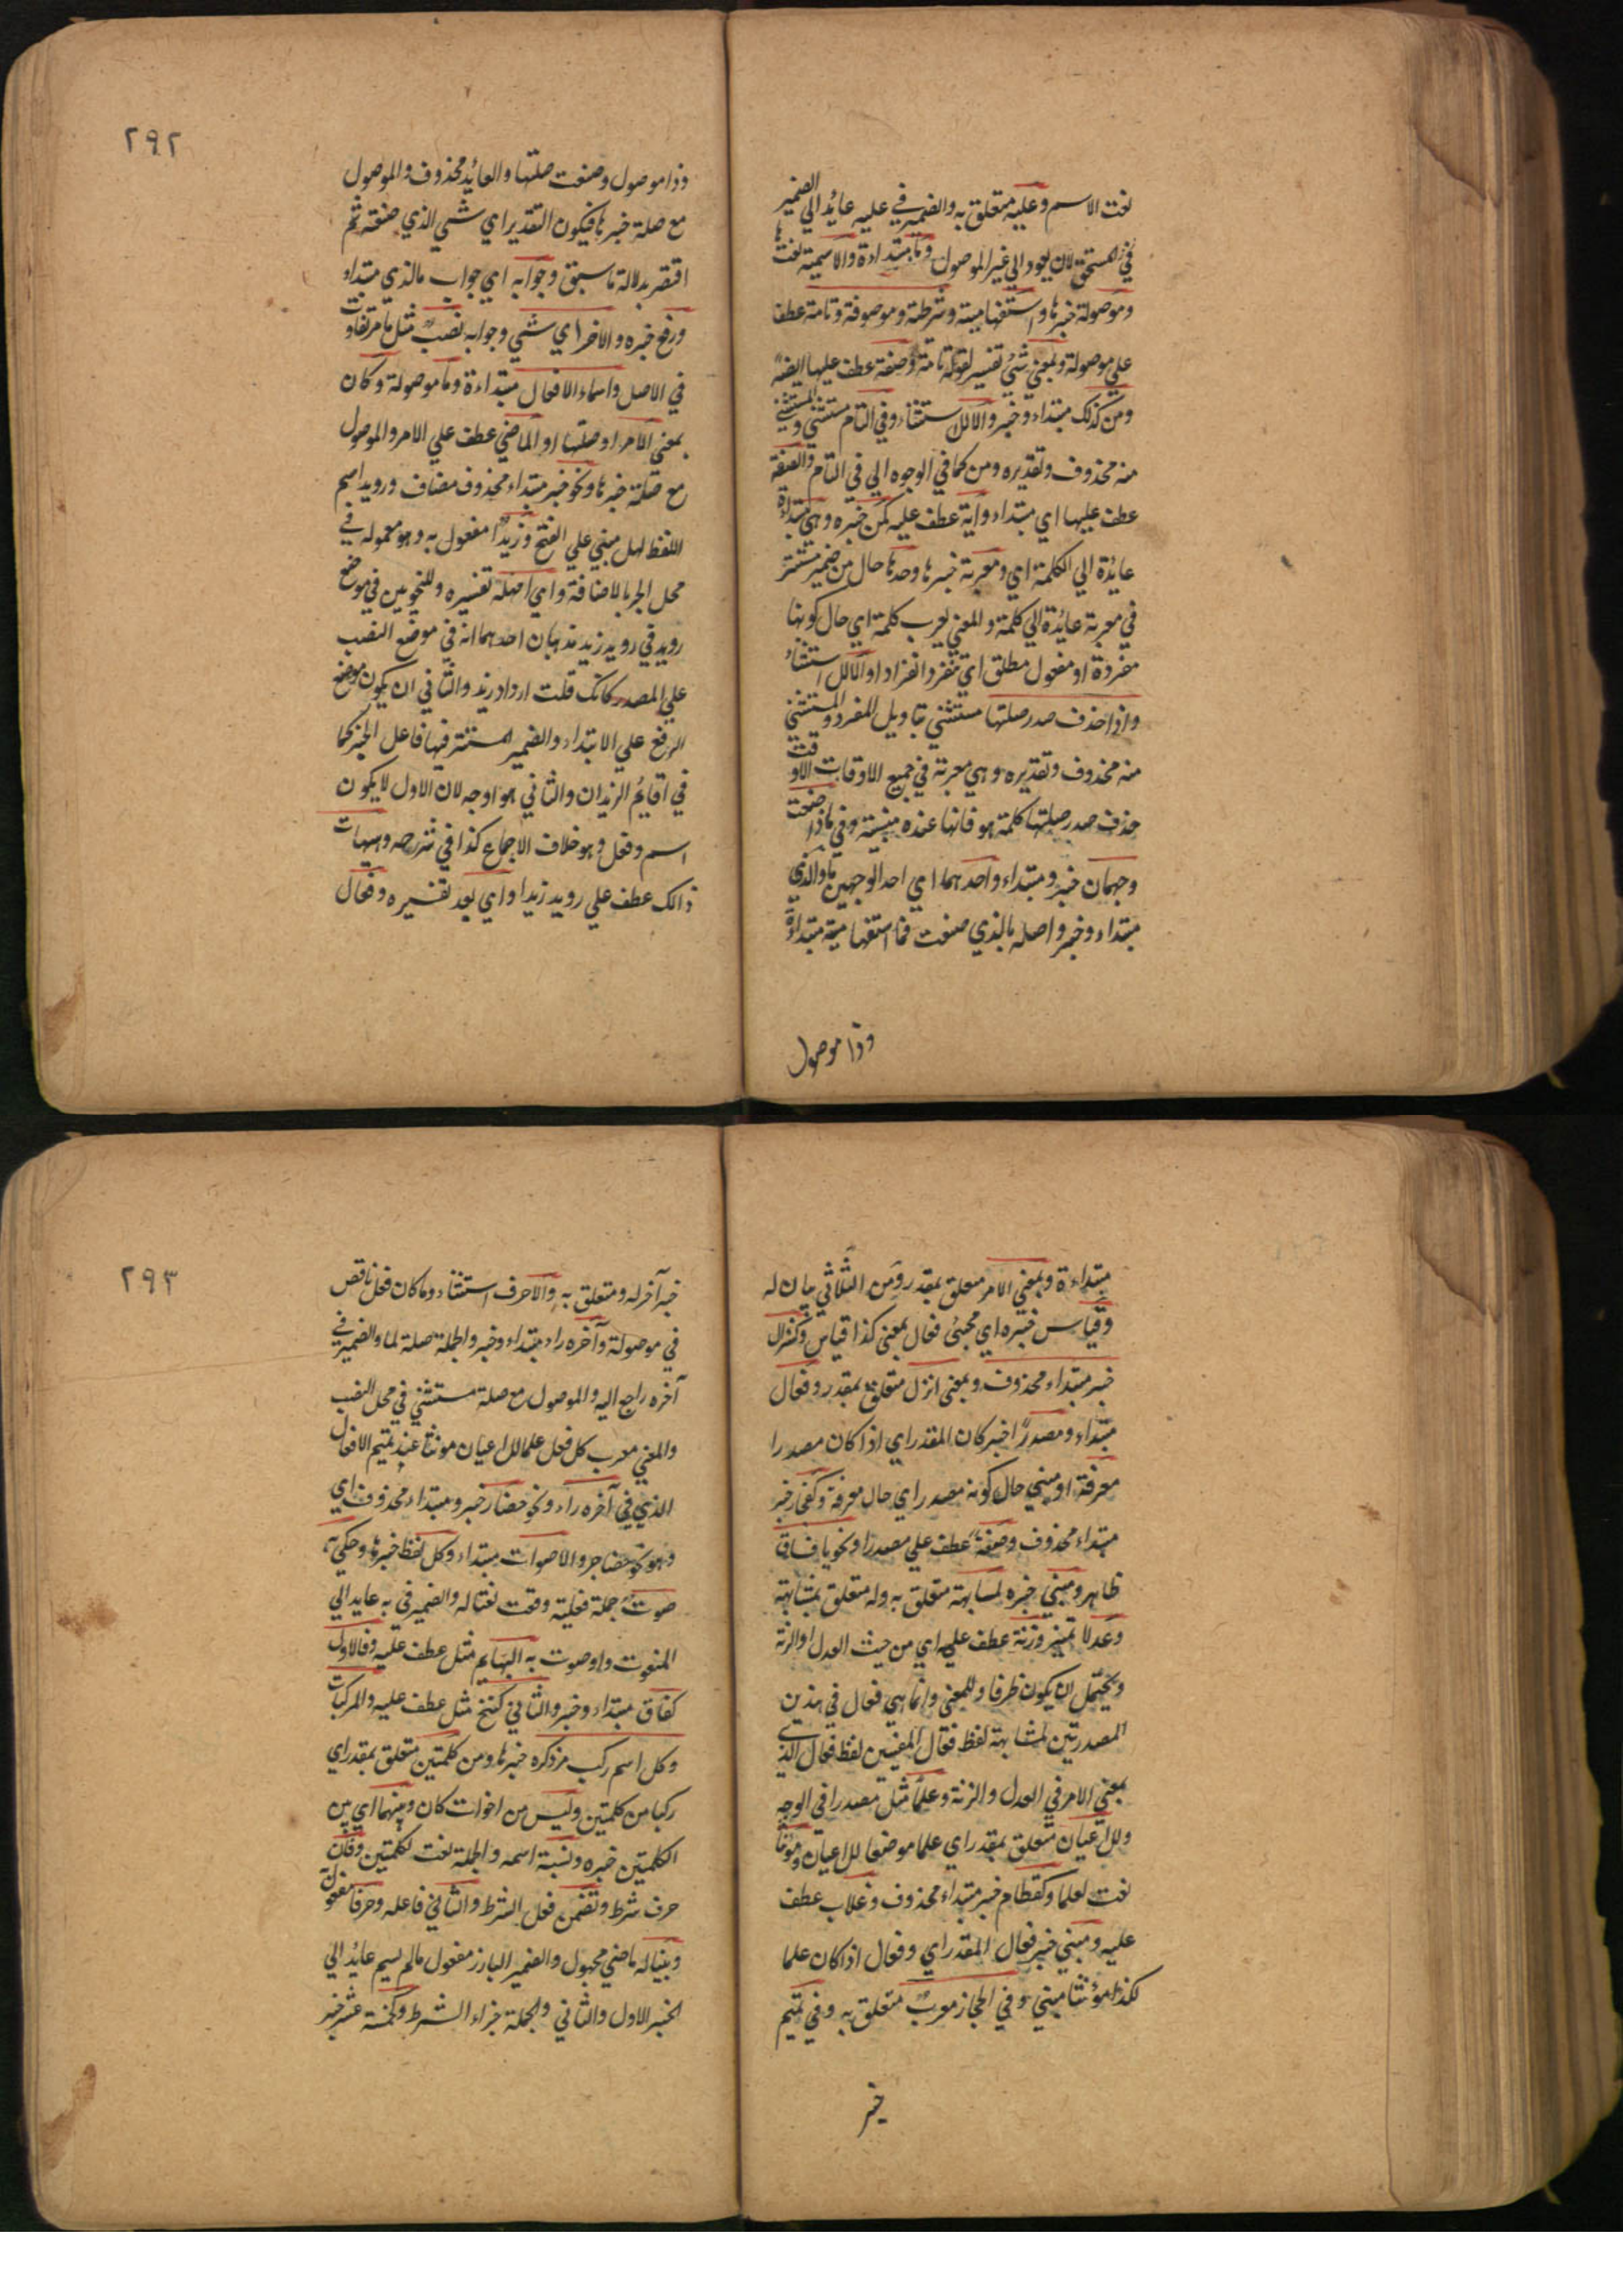 نعت الاسم وعليه متعلق به والضمير في عليه عائد الي الضمير
في المستحق لان يعود الي غير الموصول وما مبتداءة والاسمية نعت ها
وموصولة خبرها واستفهامية وشرطية وموصوفة وتامة عطف
علي موصولة وبمعني شئ تفسير لقوله تامة وصفة عطف عليها ايضا
ومن كذلك مبتداء وخبر والا للاستثناء وفي التام مستثني والمستثني
منه محذوف وتقديره ومن كما في الوجوه الي في التام والصفة
عطف عليها اي مبتداء واية عطف عليه كمن خبره وهي مبتداءة
عائدة الي الكلمة اي ومعربة خبرها وحدها حال من ضمير مستتر
في معربة عائدة الي كلمة والمعني يعرب كلمة اي حال كونها
مفردة او مفعول مطلق اي تنفرد انفرادا والا للاستثناء
واذا حذف صدر صلتها مستثني بتاويل المفرد والمستثني
منه محذوف وتقديره وهي معربة في جميع الاوقات الا وقت
حذف صدر صلتها كلمة هو فانها عنده مبنية وفي ماذا صنعت
وجهان خبر ومبتداء واحدهما اي احد الوجهين ما والذي
مبتداء وخبر واصله ما الذي صنعت فما استفهامية مبتداءة
وذا موصول
٢٩٢
وذا موصول وصنعت صلتها والعائد محذوف والموصول
مع صلة خبرها فيكون التقدير اي شئ الذي صنعته ثم
اقتصر بدلالة ما سبق وجوابه اي جواب ما الذي مبتداء
ورفع خبره والاخر اي شئ وجوابه نصب مثل ما مر تفاوت
في الاصل واسماء الافعال مبتداءة وما موصولة وكان
بمعني الامر او صلتها او الماضي عطف علي الامر والموصول
مع صلة خبرها ونحو خبر مبتداء محذوف مضاف ورويد اسم
اللفظ لهل مبني علي الفتح وزيدا مفعول به وهو معموله في
محل الجر بالاضافة واي امهله تفسيره وللنحويين في موضع
رويد في رويد زيد مذهبان احدهما انه في موضع النصب
علي المصدر كانك قلت ارواد زيد والثاني ان يكون موضع
الرفع علي الابتداء والضمير المستتر فيها فاعل الخبر كما
في اقايم الزيدان والثاني هو اوجه لان الاول لا يكون
اسم وفعل وهو خلاف الاجماع كذا في شرحه وهيهات
ذالك عطف علي رويد زيدا واي بعد تفسيره وفعال
مبتداءة وبمعني الامر متعلق بمقدر ومن الثلاثي بيان له
وقياس خبره اي مجئ فعال بمعني كذا قياس وكنزال
خبر مبتداء محذوف وبمعني انزل متعلق بمقدر وفعال
مبتداء ومصدرا خبر كان المقدر اي اذا كان مصدرا
معرفة او مبني حال كونه مصدر اي حال معرفة وكفي خبر
مبتداء محذوف وصفة عطف علي مصدرا ونحو يا فساق
ظاهر ومبني خبره لمشابهة متعلق به وله متعلق بمشابهة
وعدلا تمييز وزنة عطف عليه اي من حيث العدل او الزنة
ويحتمل ان يكون ظرفا وللمعني وانما هي فعال في هذين
المصدرتين لمشابهة لفظ فعال المفسين لفظ فعال الذي
بمعني الامر في العدل والزنة وعلما مثل مصدرا في الوجه
وللاعيان متعلق بمقدر اي علما موضعا للاعيان ومونثا
نعت لعلما وكقطام خبر مبتداء محذوف وغلاب عطف
عليه ومبني خبر فعال المقدر اي وفعال اذا كان علما
لكذا مؤنثا مبني وفي الحجاز معرب متعلق به وفي تميم
خبر
٢٩٣
خبر آخر له ومتعلق به والا حرف استثناء وما كان فعل ناقص
في موصولة وآخره راء مبتداء وخبر والجملة صلة لما والضمير في
آخره راجع اليه والموصول مع صلة مستثني في محل النصب
والمعني معرب كل فعل علما للاعيان مونثا عند تميم الا فعال
الذي في آخره راء ونحو حضار خبر ومبتداء محذوف اي
وهو نحو حضاجر والاصوات مبتداء وكل لفظ خبرها وحكي به
صوت جملة فعلية وقعت نعتا له والضمير في به عايد الي
المنعوت واو صوت به البهايم مثل عطف عليه وفالاول
كغاق مبتداء وخبر والثاني كنخ مثل عطف عليه والمركبات
وكل اسم ركب مر ذكره خبرها ومن كلمتين متعلق بمقدر اي
ركبا من كلمتين وليس من اخوات كان وبينهما اي بين
الكلمتين خبره ونسبة اسمه والجملة نعت لكلمتين وفان
حرف شرط وتضمن فعل الشرط والثاني فاعله وحرفا مفعول
وبنيا له ماضي مجهول والضمير البارز مفعول ما لم يسم عايد الي
الخبر الاول والثاني والجملة جزاء الشرط وكخمسة عشر خبر